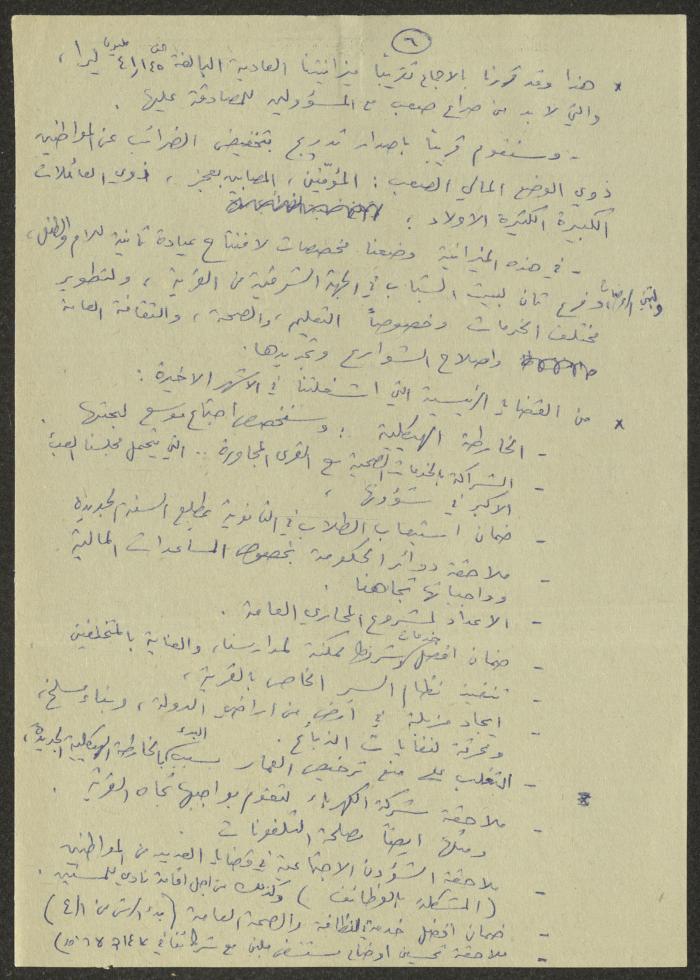 ٦
* هذا وقد قررنا بالاجماع تقريباً ميزانيتنا العادية البالغة ليرا،
والتي لا بد من صراع صعب مع المسؤولين للمصادقة عليها.
- وسنقوم قريباً باصدار تدريج بتخفيض الضرائب عن المواطنين
ذوي الوضع المالي الصعب: المصابين بعجز، ذوي العائلات
الكبيرة الكثيرة الاولاد؛
- في هذه الميزانية وضعنا مخصصات لافتتاح عيادة ثانية للام والطفل،
فرع ثان لبيت الشباب في الجهة الشرقية من القرية، ولتطوير
مختلف الخدمات وخصوصاً التعليم، والصحة، والثقافة العامة
واصلاح الشوارع وتجديدها.
* من القضايا الرئيسية التي اشغلتنا في الاشهر الاخيرة:
- الخارطة الهيكلية: وسنخصص اجتماع موسع لبحثها.
- الشراكة بالخدمات الصحية مع القرى المجاورة.. التي يتحمل مجلسنا العبء
الاكبر في شؤونها،
- ضمان استيعاب الطلاب في الثانوية مطلع السنة الجديدة
- ملاحقة دوائر الحكومة بخصوص المساعدات المالية
وواجباتها تجاهنا.
- الاعداد لمشروع المجاري العامة.
- ضمان افضل خدمات وشروط ممكنة لمدارسنا، والعناية بالمتخلفين
- تنفيذ نظام السير الخاص بالقرية،
- ايجاد مزبلة في ارض من اراضي الدولة، وبناء مسلخ،
ومحرقة لنفايات الذبائح.
- التغلب على منع ترخيص العمار بسبب البدء بالخارطة الهيكلية الجديدة،
- ملاحقة شركة الكهرباء لتقوم بواجبها تجاه القرية.
ومثلها ايضاً مصلحة التلفونات
- ملاحقة الشؤون الاجتماعية في قضايا العديد من المواطنين
(المشكلة بالوظائف) وكذلك من اجل اقامة نادي للمسنين.
- ضمان افضل خدمة للنظافة والصحة العامة
- ملاحقة تحسين اوضاع مع